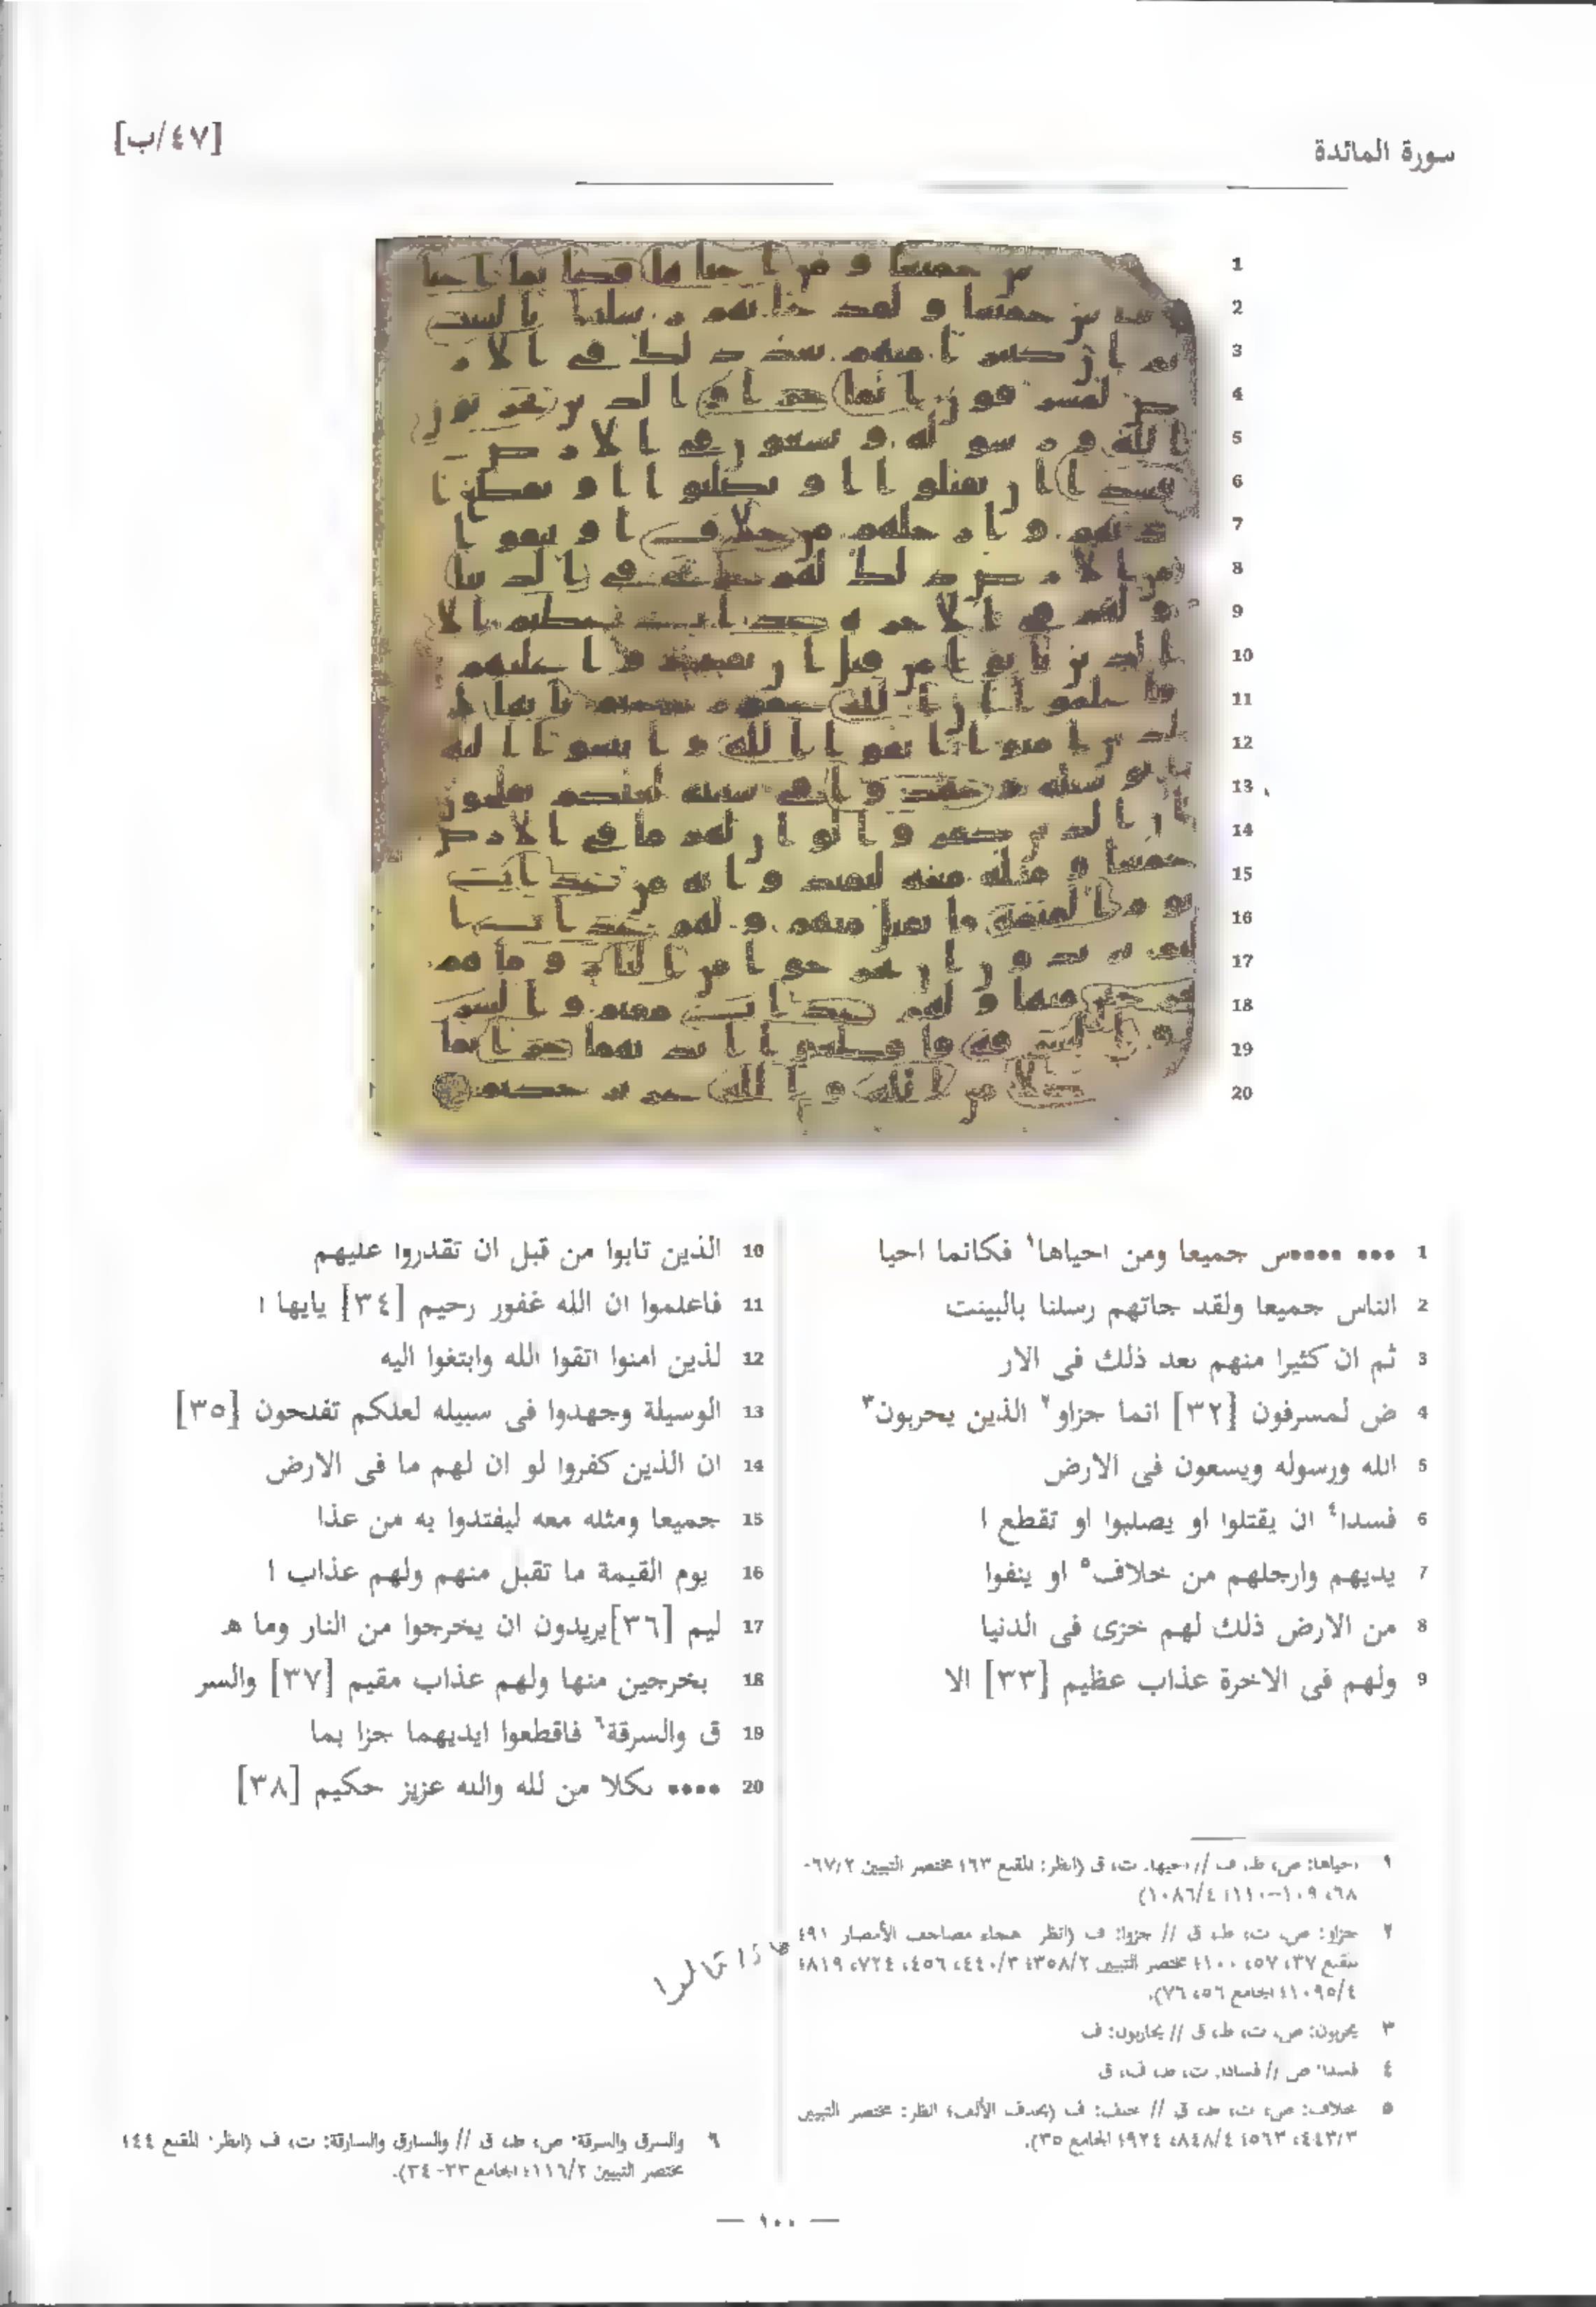 سورة المائدة
[٤٧/ب]
1
2
3
4
5
6
7
8
9
10
11
12
13
14
15
16
17
18
19
20
1 ••• ••••س جميعا ومن احياها١ فكانما احيا
2 الناس جميعا ولقد جاتهم رسلنا بالبينت
3 ثم ان كثيرا منهم بعد ذلك فى الار
4 ض لمسرفون [٣٢] انما جزاو٢ الذين يحربون٣
5 الله ورسوله ويسعون فى الارض
6 فسدا٤ ان يقتلوا او يصلبوا او تقطع ا
7 يديهم وارجلهم من خلاف٥ او ينفوا
8 من الارض ذلك لهم خزى فى الدنيا
9 ولهم فى الاخرة عذاب عظيم [٣٣] الا
10 الذين تابوا من قبل ان تقدروا عليهم
11 فاعلموا ان الله غفور رحيم [٣٤] يايها ا
12 لذين امنوا اتقوا الله وابتغوا اليه
13 الوسيلة وجهدوا فى سبيله لعلكم تفلحون [٣٥]
14 ان الذين كفروا لو ان لهم ما فى الارض
15 جميعا ومثله معه ليفتدوا به من عذا
16 يوم القيمة ما تقبل منهم ولهم عذاب ا
17 ليم [٣٦]يريدون ان يخرجوا من النار وما هـ
18 بخرجين منها ولهم عذاب مقيم [٣٧] والسر
19 ق والسرقة٦ فاقطعوا ايديهما جزا بما
20 •••• نكلا من لله والله عزيز حكيم [٣٨]
١ احياها: ص، ط، ف // احيها: ت، ق (انظر: المقنع ١٦٣ مختصر التبيين ٦٧/٢-
٦٨، ١٠٩-١١٠؛ ١٠٨٦/٤)
٢ جزاو: ص، ت، ط، ق // جزوا: ف (انظر هجاء مصاحف الأمصار ٤٩١
المقنع ٣٧، ٥٧، ١٠٠؛ مختصر التبيين ٣٥٨/٢؛ ٤٤٠/٣، ٤٥٦، ٧٢٤، ٨١٩؛
١٠٩٥/٤؛ الجامع ٥٦، ٧٦).
٣ يحربون: ص، ت، ط، ق // يحاربون: ف
٤ فسدا: ص // فسادا: ت، ط، ف، ق
٥ خلاف: ص، ت، ط، ق // خلف: ف (بحذف الألف؛ انظر: مختصر التبيين
٤٤٣/٣، ٥٦٣؛ ٨٤٨/٤، ٩٢٤؛ الجامع ٣٥).
٦ والسرق والسرقة: ص، ط، ق // والسارق والسارقة: ت، ف (انظر: المقنع ٤٤؛
مختصر التبيين ١١٦/٢؛ الجامع ٣٣-٣٤).
— ١٠٠ —